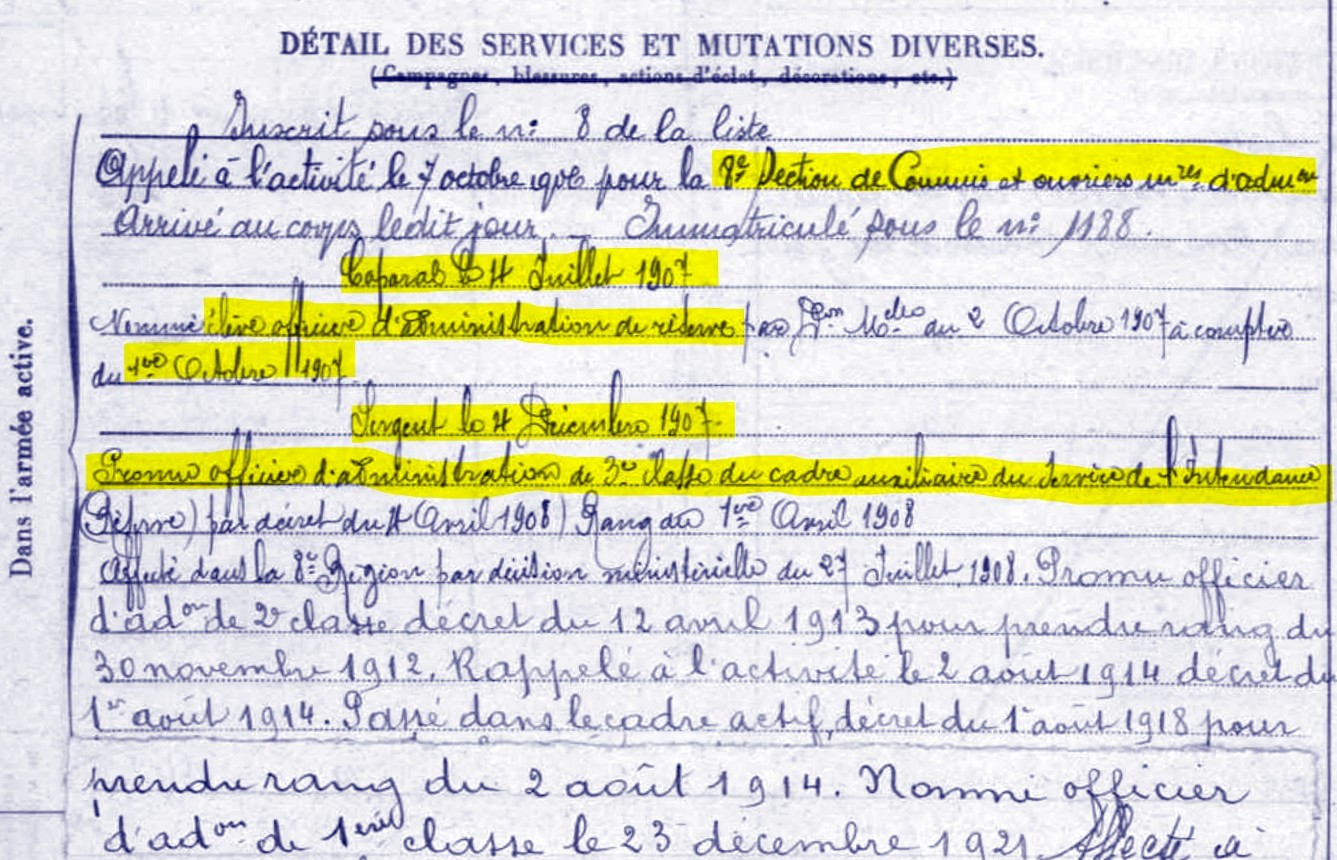 DÉTAIL DES SERVICES ET MUTATIONS DIVERSES.
(Campagnes, blessures, actions d'éclat, décorations, etc.)
Inscrit sous le n: 8 de la liste
Appelé à l'activité le 7 octobre 1906 pour la 8e Section de Commis et ouvriers mres d'admon
Arrivé au corps ledit jour. _ Immatriculé sous le n: 1188.
Caporal le 4 Juillet 1907
Nommé élève officier d'administration de réserve par Don du 2 Octobre 1907 à compter
du 1er Octobre 1907.
Sergent le 4 Décembre 1907.
Promu officier d'administration de 3e classe du cadre auxiliaire du Service de l'Intendance
(Réserve) par décret du Avril 1908) Rang du 1er Avril 1908
Affecté dans la 8e Région par décision ministérielle du 27 Juillet 1908. Promu officier
d'adon de 2e classe décret du 12 avril 1913 pour prendre rang du
30 novembre 1912. Rappelé à l'activité le 2 août 1914 décret du
1er août 1914. Passé dans le cadre actif, décret du 1er août 1918 pour
prendre rang du 2 août 1914. Nommé officier
d'adon de 1ère classe le 23 décembre 1921 Affecté à
Dans l'armée active.